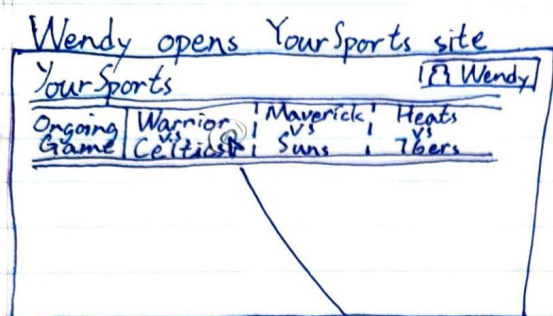 Wendy opens YourSports site
YourSports
Wendy
Ongoing Game
Warrior vs Celtics
Maverick vs Suns
Heats vs 76ers